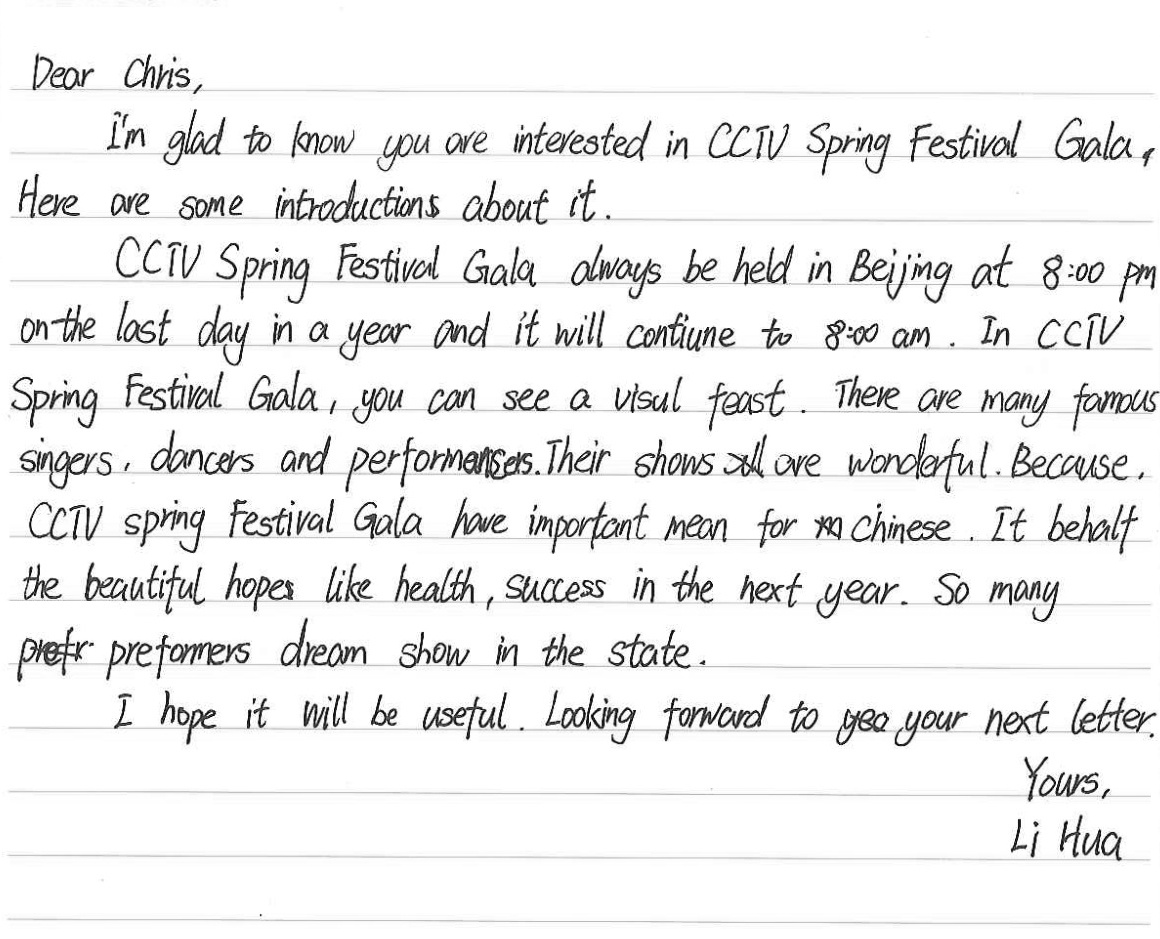 Dear Chris,
I'm glad to know you are interested in CCTV Spring Festival Gala,
Here are some introductions about it.
CCTV Spring Festival Gala always be held in Beijing at 8:00 pm
on the last day in a year and it will contiune to 8:00 am. In CCTV
Spring Festival Gala, you can see a visul feast. There are many famous
singers, dancers and performensers. Their shows all are wonderful. Because,
CCTV spring Festival Gala have important mean for Chinese. It behalf
the beautiful hopes like health, success in the next year. So many
preformers dream show in the state.
I hope it will be useful. Looking forward to your next letter.
Yours,
Li Hua